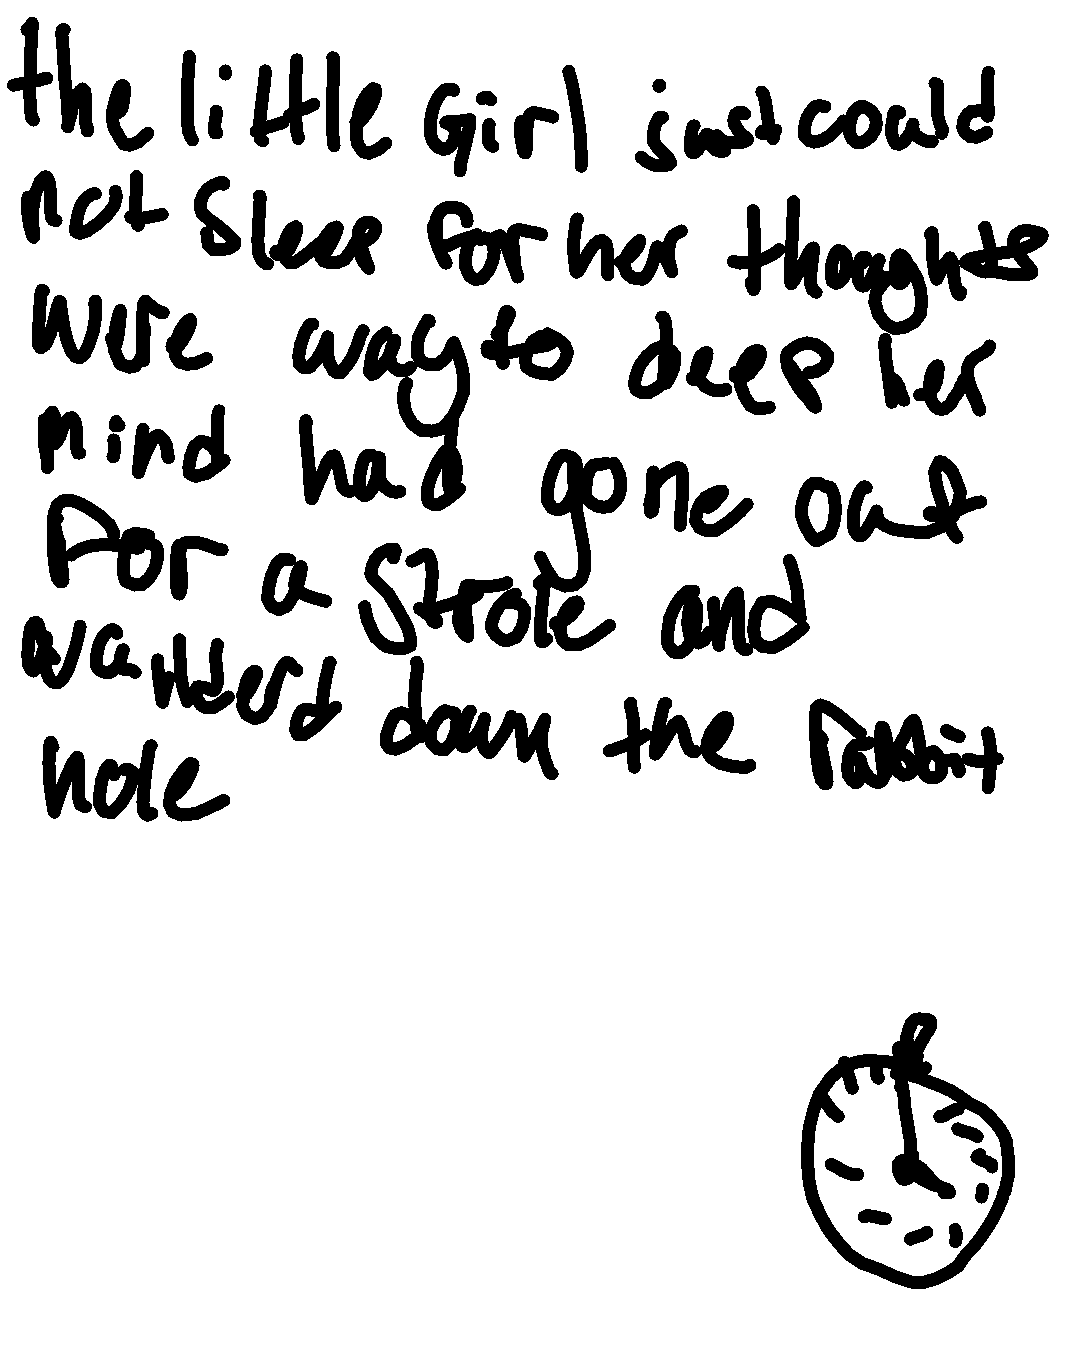 the little Girl just could
not Sleep for her thoughts
were way to deep her
mind had gone out
For a Strole and
wanderd down the rabbit
hole